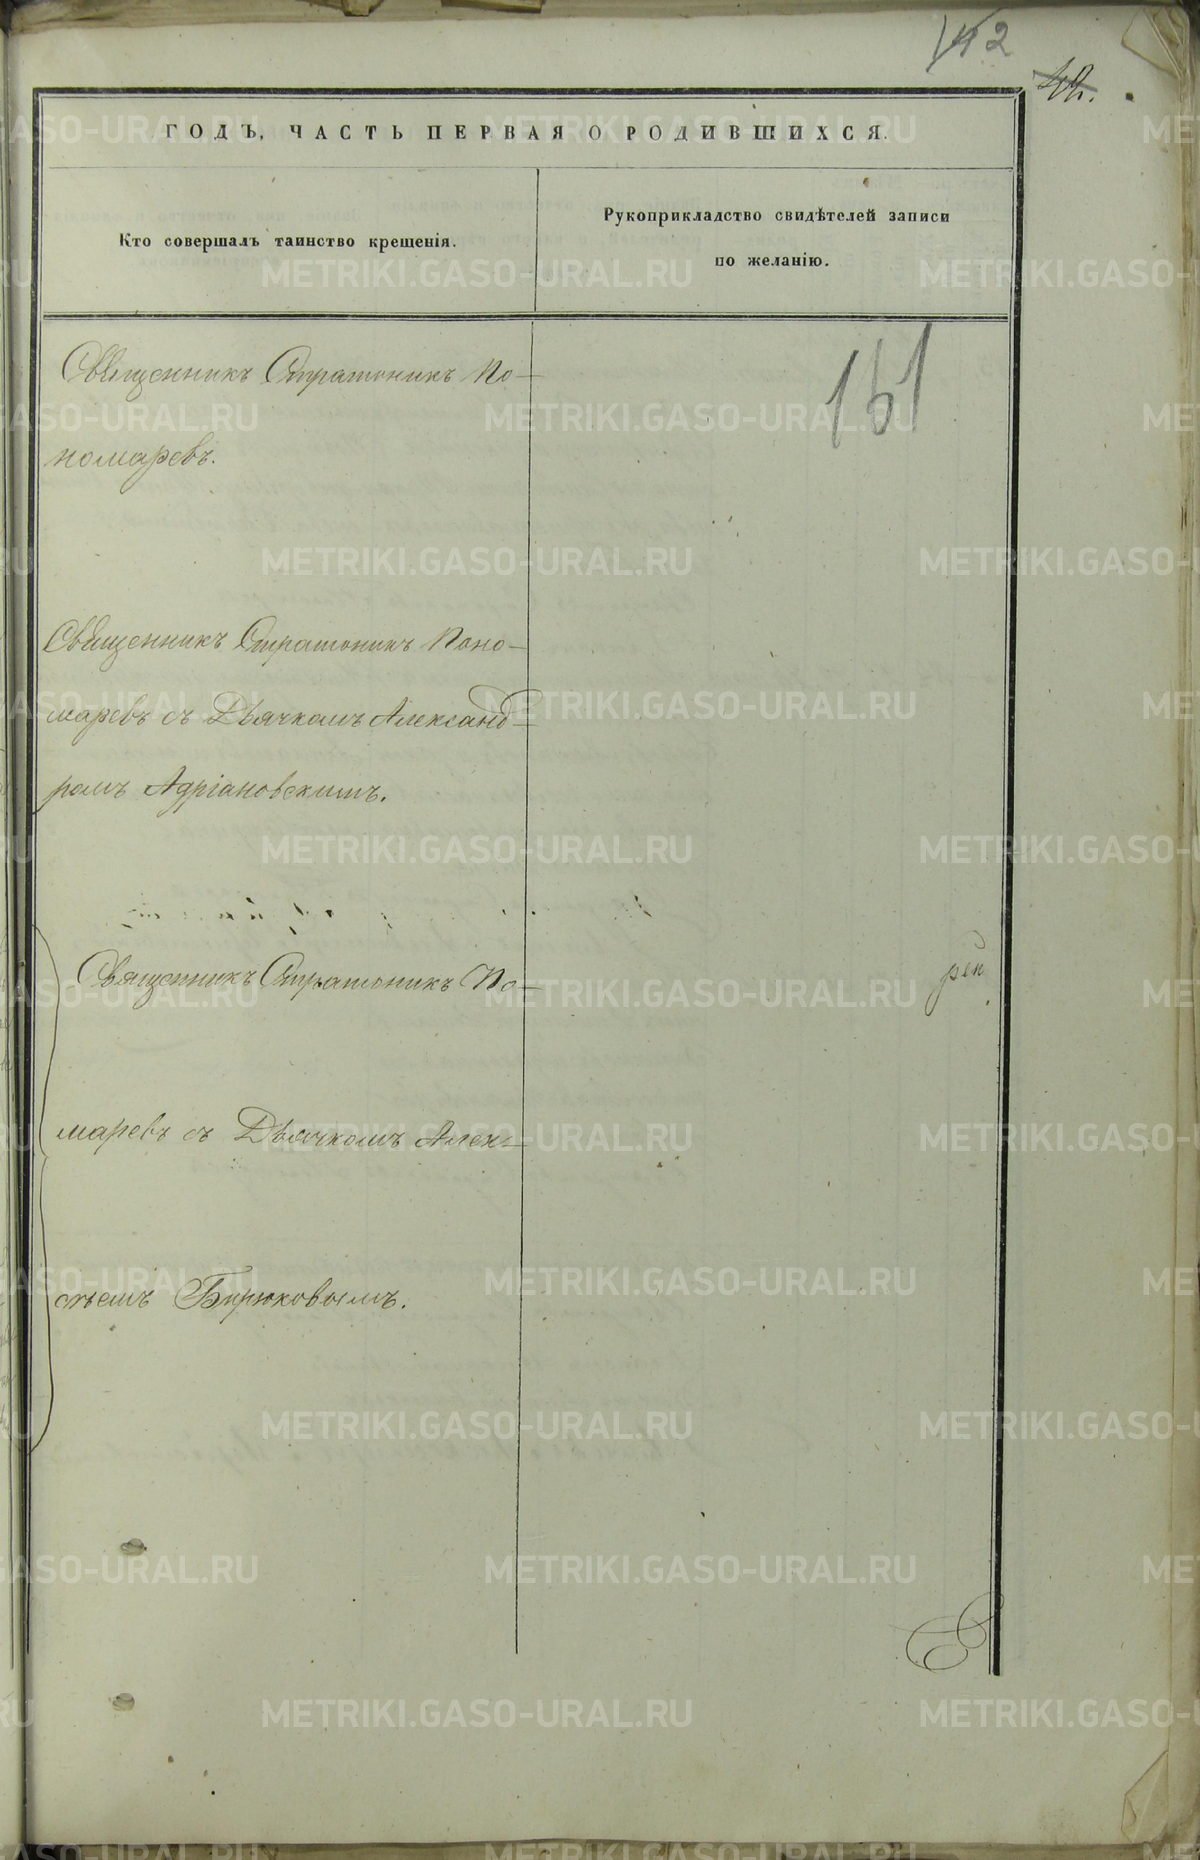 142
42.
ГОДЪ, ЧАСТЬ ПЕРВАЯ О РОДИВШИХСЯ.
Кто совершалъ таинство крещенія.
Рукоприкладство свидѣтелей записи
по желанію.
151
Священникъ Стратоникъ По-
номаревъ.
Священникъ Стратоникъ Поно-
маревъ съ Дьячкомъ Александ-
ромъ Адріановскимъ.
Священникъ Стратоникъ По-
рен
маревъ съ Дьячкомъ Алек-
сѣемъ Бирюковымъ.
METRIKI.GASO-URAL.RU